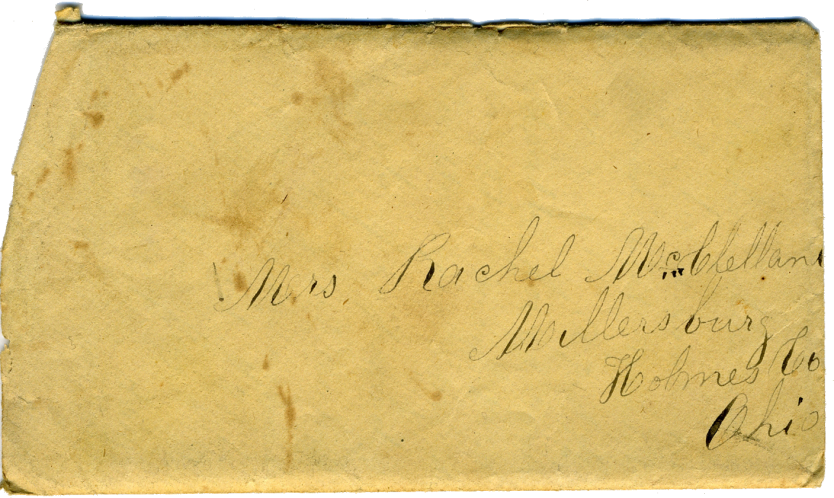 Mrs. Rachel McClellan
Millersburg
Holmes Co
Ohio